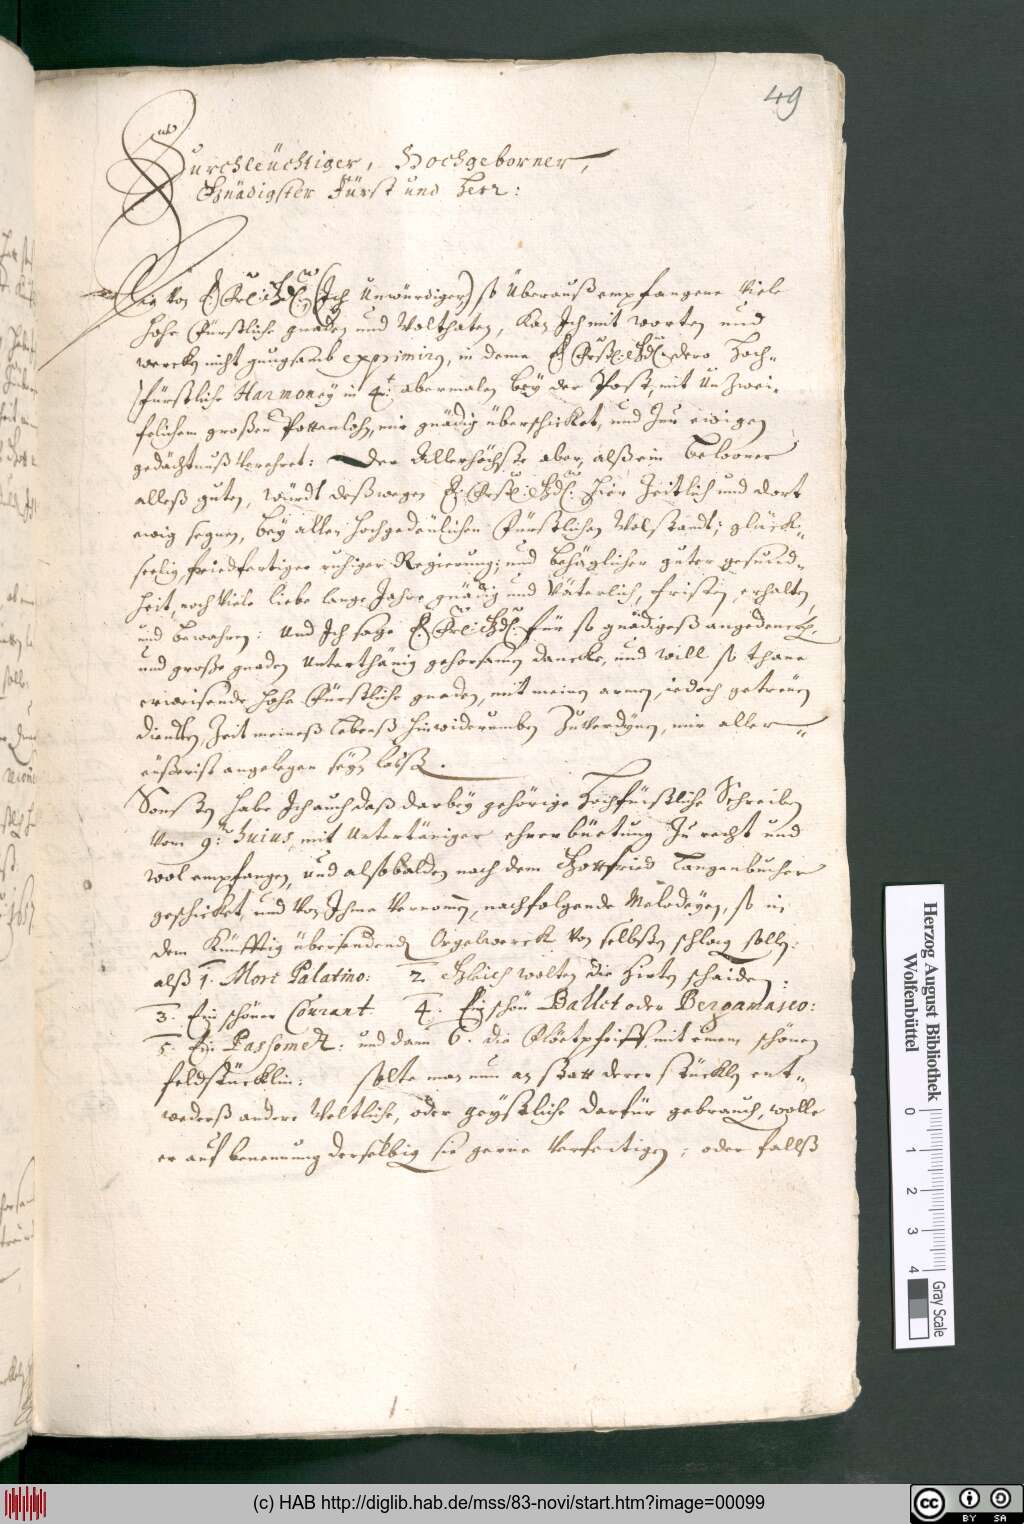 49
Durchleüchtiger, Hochgeborner,
Gnädigster Fürst und Herr:
Die von E: Frl: Gd: (Ich Unwürdiger) so überauß empfangene Viele
hohe Fürstliche gnaden und Wolthaten, kan Ich mit worten und
wercken nicht gnugsamb exprimirn, in deme E: Frstl: Gd: dero Hoch-
fürstliche Harmoney in 4t: abermalen bey der Post, mit Unzwei-
felichem großen Postanlohn, mir gnädig überschicket, und Zur ewigen
gedächtnuß Verehret: Der Allerhöchste aber, alß ein Belooner
alleß guten, würdt deßwegen E: Frstl: Gd: hier Zeitlich und dort
ewig segnen, bey allen hochgedeülichen Fürstlichen Wolstandt; glück-
seelig, friedfertiger ruhiger Regierung; und behäglicher guter gesund-
heit, noch Viele liebe lange Jahre gnädig und Väterlich, fristen, erhalten,
und bewahren: Und Ich sage E: Frl: Gd: für so gnädigeß angedencken,
und große gnaden Unterthänig gehorsamen dancke, und will so thane
erweisende hohe Fürstliche gnaden, mit meinen armen, iedoch getreüen
diensten, Zeit meineß Lebenß hinwiderumben Zu Verdynen, mir aller-
eüßerist angelegen seyn laßen.
Sonsten habe Ich auch daß darbey gehörige Hochfürstliche Schreiben
Vom 9: huius, mit Untertäniger ehrerbüetung Zu recht und
wol empfangen, und alsobalden nach dem Gottfried Langenbucher
geschicket, und Von Ihme Vernomen, nachfolgende Melodeyen, so in
dem Künfftig übersendenden Orgelwerck Von selbsten schlagen sollen:
alß 1. More Palatino: 2. Gleich wolten die Hirten schaiden:
3. Ein schöner Courant. 4. Ein schön Ballet oder Bergamasco:
5. Ein Passomezt: und dann 6. die Flöetpfeiff mit einem schönen
feldstücklin: solte man nun an statt derer stücklen ent-
wederß andere Weltliche, oder geystliche darfür gebrauchen, wolle
er auf benennung derselbigen sie gerne Verfertigen; oder fallß
Herzog August Bibliothek
Wolfenbüttel
0 1 2 3 4
Gray Scale
(c) HAB http://diglib.hab.de/mss/83-novi/start.htm?image=00099
cc BY SA